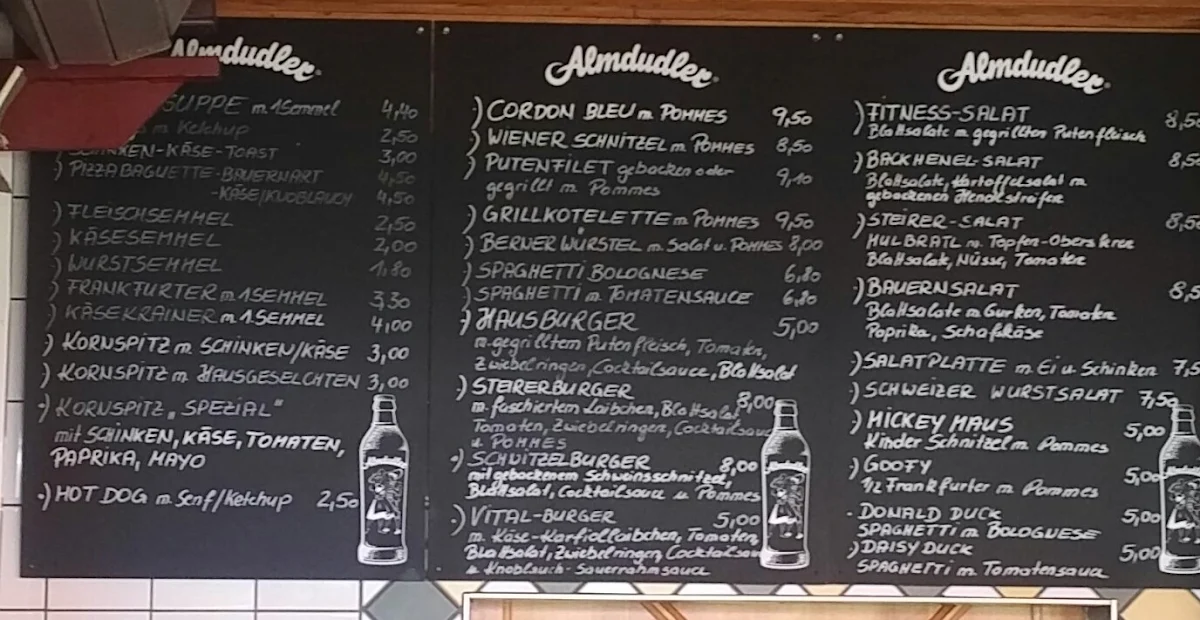 Almdudler
SUPPE m. 1 Semmel 4,40
m. Ketchup 2,50
SCHINKEN-KÄSE-TOAST 3,00
·) PIZZABAGUETTE-BAUERNART 4,50
-KÄSE/KNOBLAUCH 4,50
·) FLEISCHSEMMEL 2,50
·) KÄSESEMMEL 2,00
·) WURSTSEMMEL 1,80
·) FRANKFURTER m 1 SEMMEL 3,30
·) KÄSEKRAINER m 1 SEMMEL 4,00
·) KORNSPITZ m. SCHINKEN/KÄSE 3,00
·) KORNSPITZ m. HAUSGESELCHTEN 3,00
·) KORNSPITZ „SPEZIAL"
mit SCHINKEN, KÄSE, TOMATEN,
PAPRIKA, MAYO
·) HOT DOG m. Senf/Ketchup 2,50
Almdudler
Almdudler
·) CORDON BLEU m. POMMES 9,50
·) WIENER SCHNITZEL m. POMMES 8,50
·) PUTENFILET gebacken oder 9,10
gegrillt m. Pommes
·) GRILLKOTELETTE m. POMMES 9,50
·) BERNER WÜRSTEL m. Salat u. POMMES 8,00
·) SPAGHETTI BOLOGNESE 6,80
·) SPAGHETTI m. TOMATENSAUCE 6,80
·) HAUSBURGER 5,00
m. gegrilltem Putenfleisch, Tomaten,
Zwiebelringen, Cocktailsauce, Blattsalat
·) STEIRERBURGER 8,00
m. faschiertem Laibchen, Blattsalat
Tomaten, Zwiebelringen, Cocktailsauce
u. POMMES
·) SCHNITZELBURGER 8,00
mit gebackenem Schweinsschnitzel,
Blattsalat, Cocktailsauce u Pommes
·) VITAL-BURGER 5,00
m. Käse-Karfiollaibchen, Tomaten,
Blattsalat, Zwiebelringen, Cocktailsauce
u Knoblauch-Sauerrahmsauce
Almdudler
Almdudler
·) FITNESS-SALAT 8,50
Blattsalate m. gegrillten Putenfleisch
·) BACKHENEL-SALAT 8,5
Blattsalate, Kartoffelsalat m.
gebackenen Hendlstreifen
·) STEIRER-SALAT 8,50
HÜLBRATL m. Topfen-Oberskren
Blattsalat, Nüsse, Tomaten
·) BAUERNSALAT 8,5
Blattsalate m Gurken, Tomaten
Paprika, Schafskäse
·) SALATPLATTE m Ei u. Schinken 7,5
·) SCHWEIZER WURSTSALAT 7,50
·) MICKEY MAUS 5,00
Kinder Schnitzel m. Pommes
·) GOOFY 5,00
1/2 Frankfurter m Pommes
· DONALD DUCK 5,00
SPAGHETTI m BOLOGNESE
·) DAISY DUCK 5,00
SPAGHETTI m. Tomatensauce
Almdudler